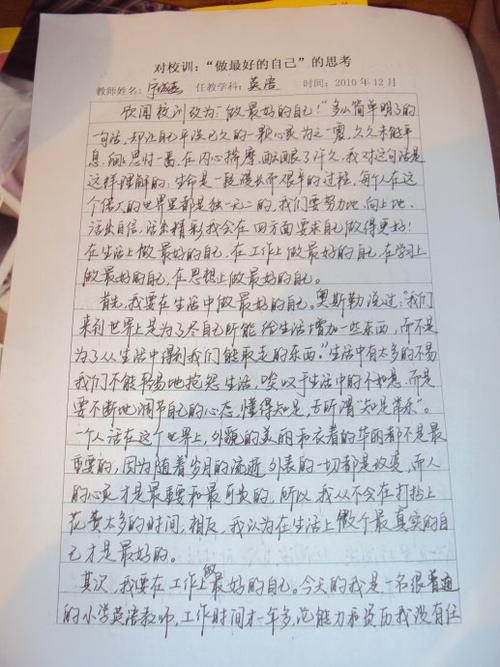 对校训：“做最好的自己”的思考
教师姓名： 任教学科：英语 时间：2010年12月
欣闻校训改为：“做最好的自己！”多么简单明了的
一句话，却让自己平淡已久的一颗心灵为之一震，久久未能平
息，细思忖一番，在内心揣摩、回味了许久，我对这句话是
这样理解的：生命是一段漫长而艰辛的过程，每个人在这
个偌大的世界里都是独一无二的，我们要努力地、向上地、
活出自信，活出精彩，我会在四方面要求自己做得更好！
在生活上做最好的自己，在工作上做最好的自己，在学习上
做最好的自己，在思想上做最好的自己。
首先，我要在生活中做最好的自己。奥斯勒说过：“我们
来到世界上是为了尽自己所能给生活增加一些东西，而不是
为了从生活中得到我们能取走的东西。”生活中有太多的不易
我们不能轻易地抱怨生活，唉叹于生活中的不如意，而是
要不断地调节自己的心态，懂得知足，古所谓“知足常乐”。
一个人活在这个世界上，外貌的美丽和衣着的华丽都不是最
重要的，因为随着岁月的流逝，外表的一切都是改变，而人
的心灵才是最重要和最可贵的，所以，我从不会在打扮上
花费太多的时间，相反，我认为在生活上做个最真实的自
己才是最好的。
其次，我要在工作上做最好的自己。今天的我是一名很普通
的小学英语教师，工作时间才一年多，论能力和资历我没有任